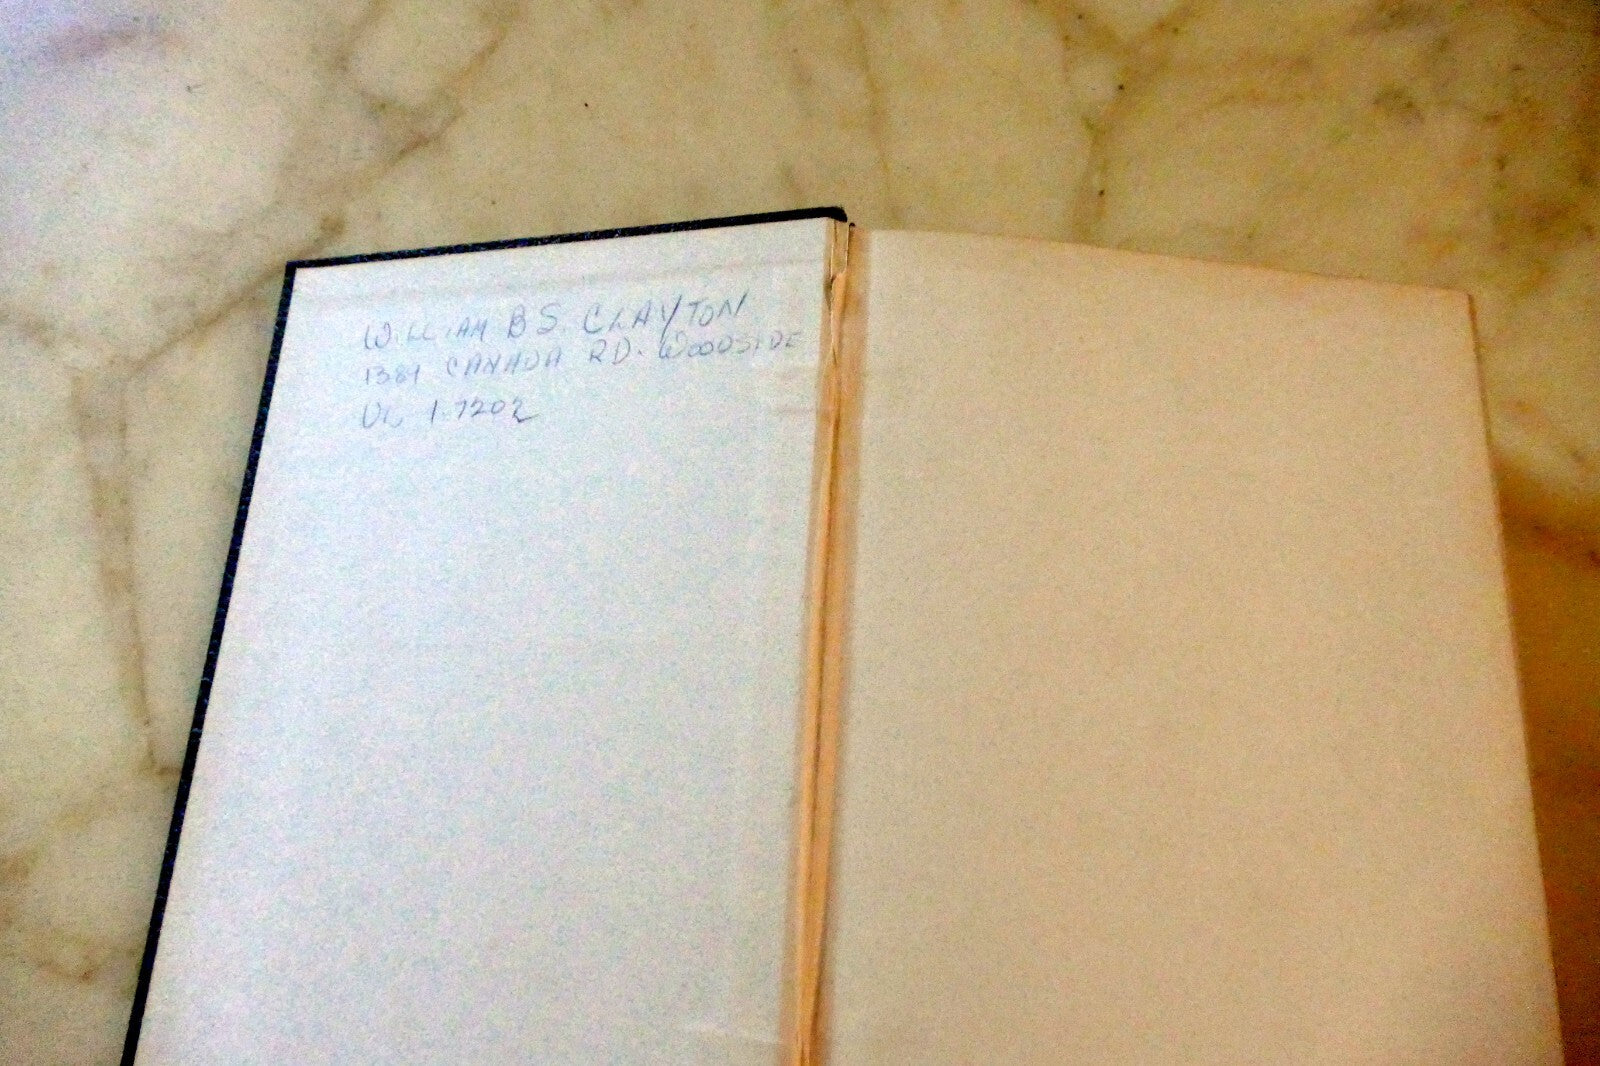 WILLIAM B S. CLAYTON
1384 CANADA RD. WOODSIDE
UL 1.7202